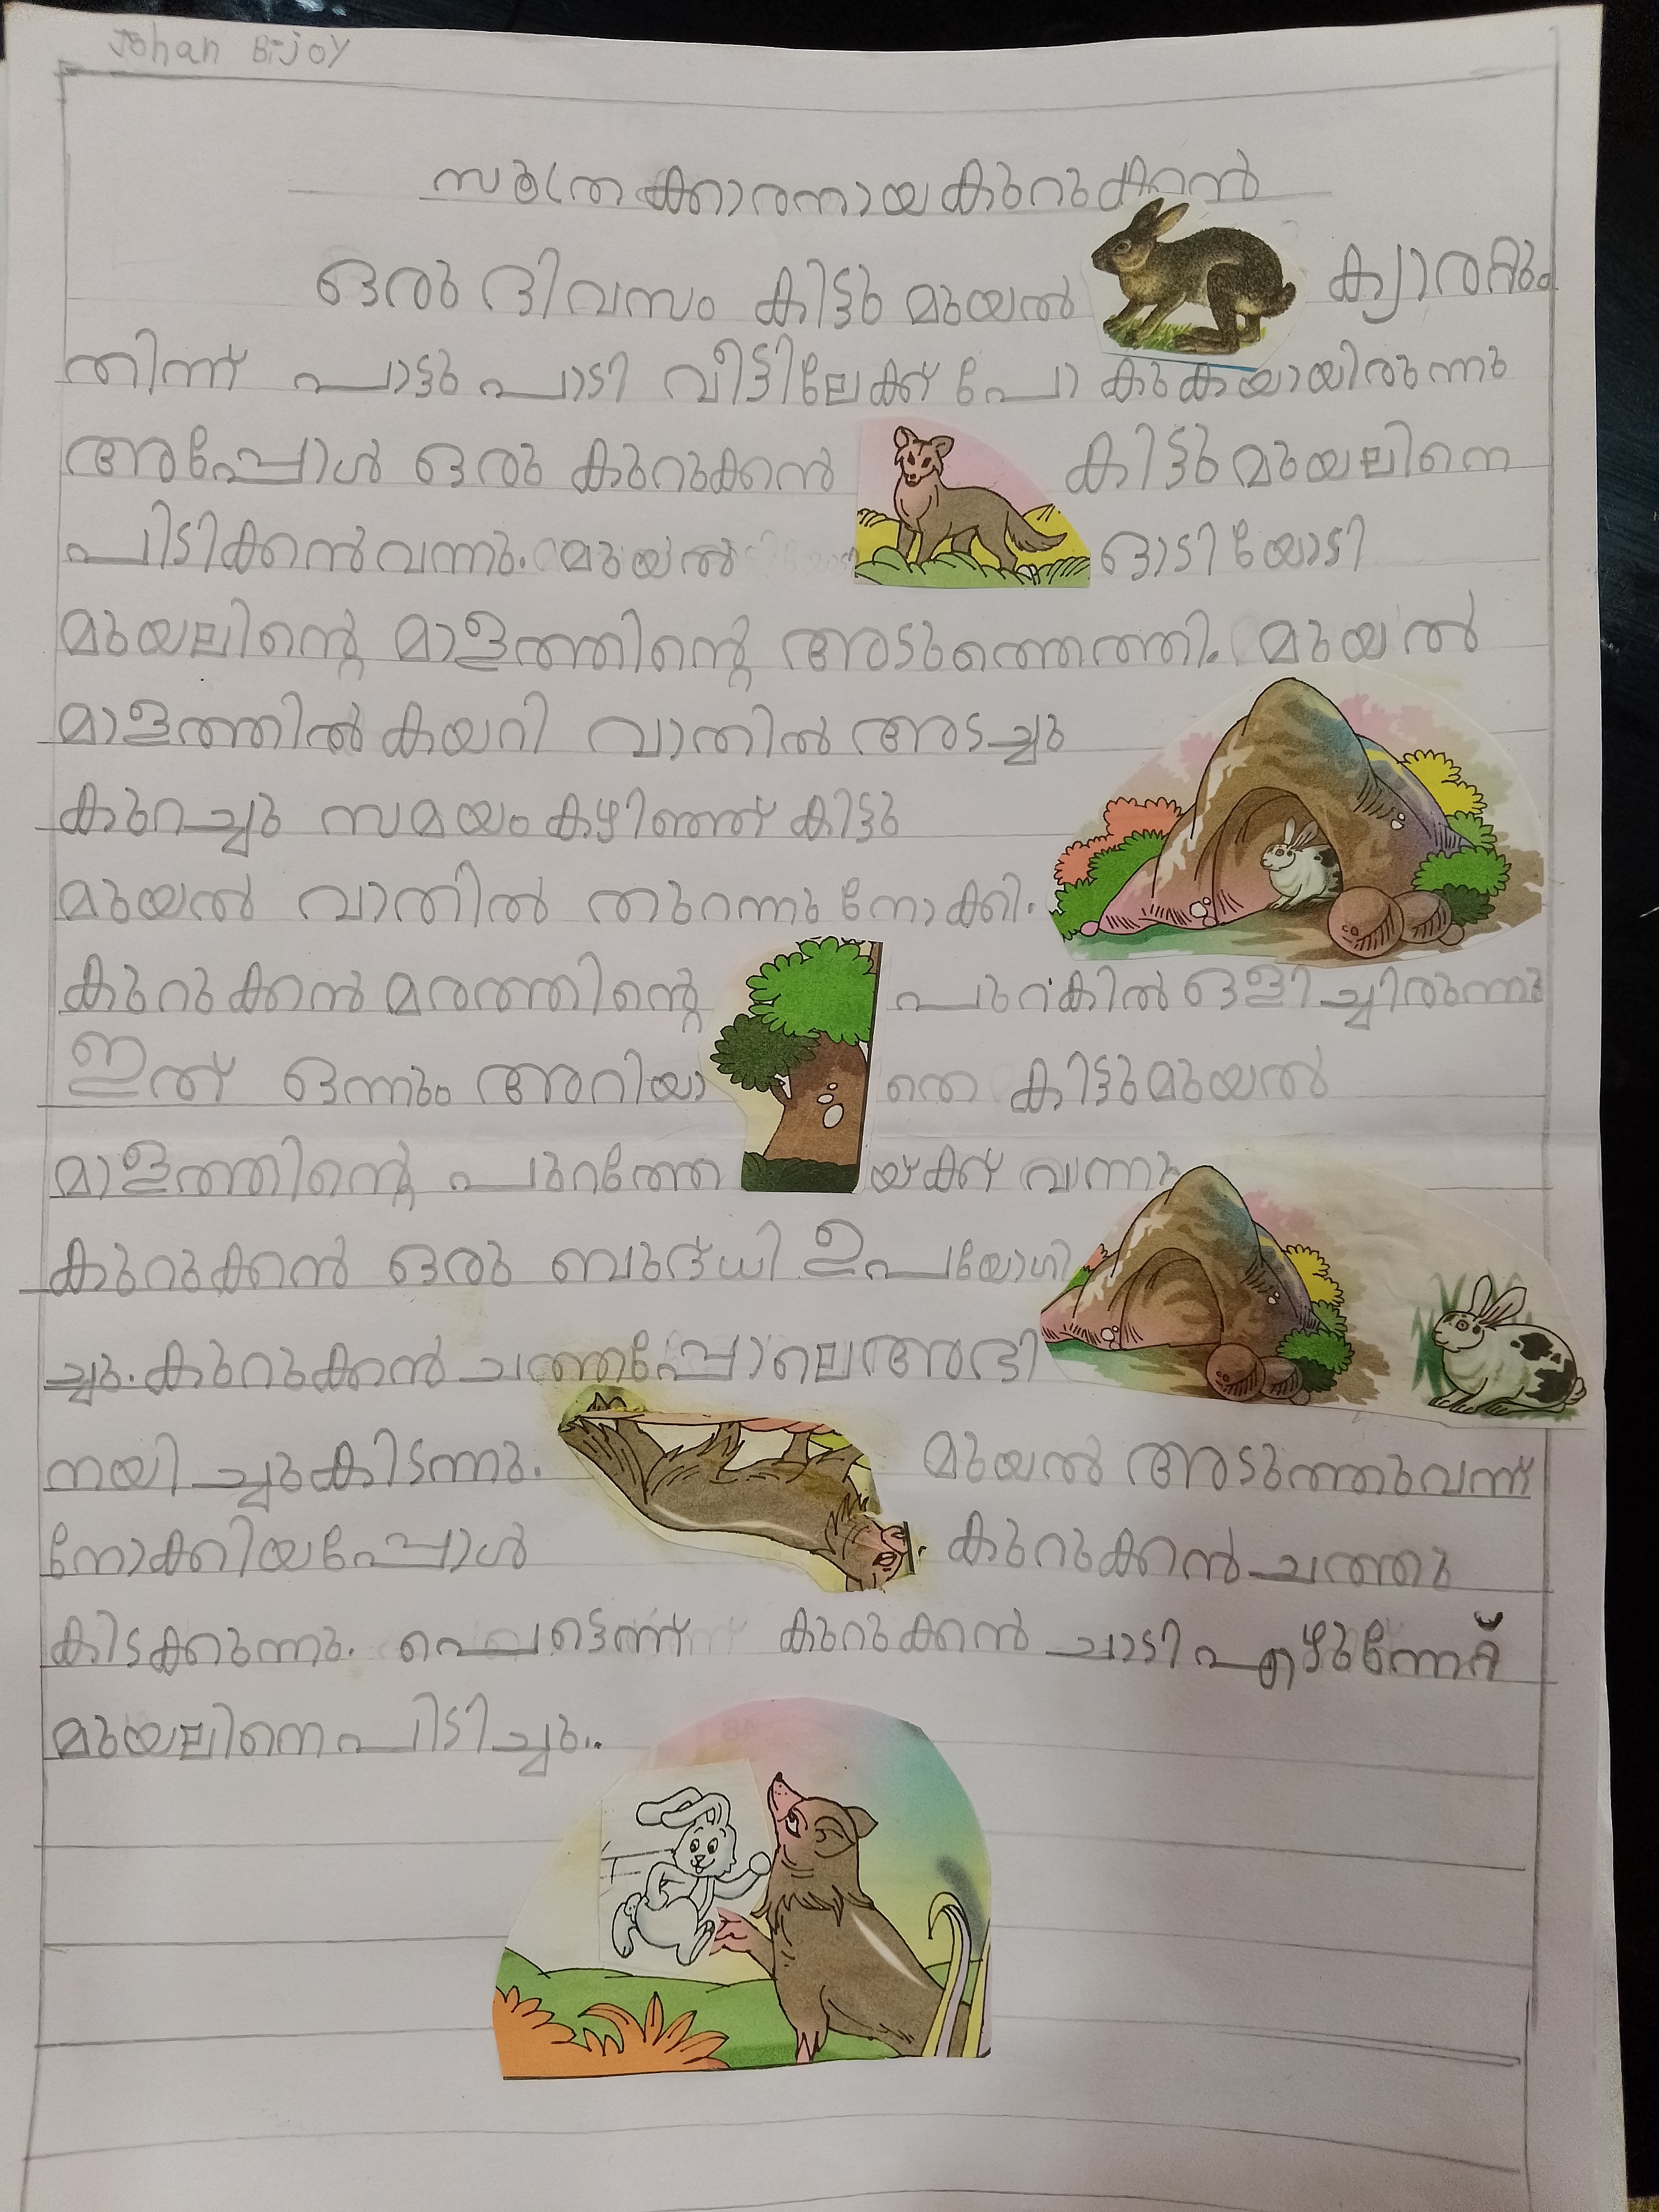 Johan Bijoy
സൂത്രക്കാരനായ കുറുക്കൻ
ഒരു ദിവസം കിട്ടു മുയൽ ക്യാരറ്റും
തിന്ന് പാട്ടു പാടി വീട്ടിലേക്ക് പോകുകയായിരുന്നു
അപ്പോൾ ഒരു കുറുക്കൻ കിട്ടു മുയലിനെ
പിടിക്കൻ വന്നു. മുയൽ ഓടിയോടി
മുയലിന്റെ മാളത്തിന്റെ അടുത്തെത്തി. മുയൽ
മാളത്തിൽ കയറി വാതിൽ അടച്ചു
കുറച്ചു സമയം കഴിഞ്ഞ് കിട്ടു
മുയൽ വാതിൽ തുറന്നു നോക്കി.
കുറുക്കൻ മരത്തിന്റെ പുറകിൽ ഒളിച്ചിരുന്നു
ഇത് ഒന്നും അറിയാതെ കിട്ടു മുയൽ
മാളത്തിന്റെ പുറത്തേയ്ക്ക് വന്നു
കുറുക്കൻ ഒരു ബുദ്ധി ഉപയോഗി
ച്ചു. കുറുക്കൻ ചത്തപ്പോലെ അഭി
നയിച്ചു കിടന്നു. മുയൽ അടുത്തു വന്ന്
നോക്കിയപ്പോൾ കുറുക്കൻ ചത്തു
കിടക്കുന്നു. പെട്ടെന്ന് കുറുക്കൻ ചാടി
മുയലിനെ പിടിച്ചു..